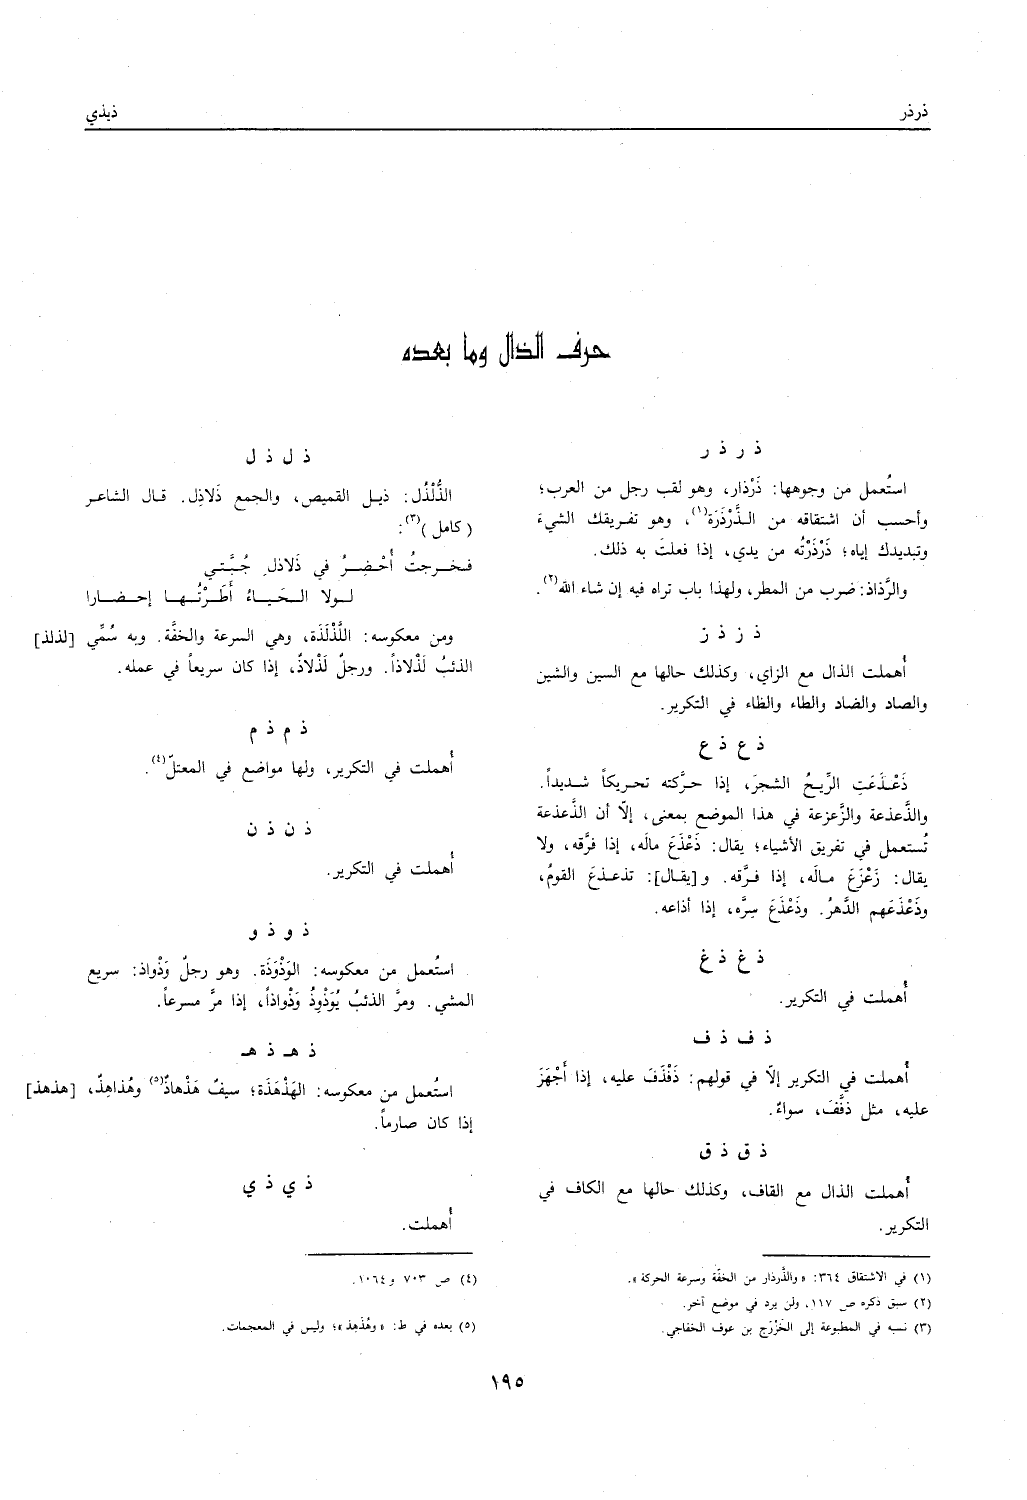 ذرذر
ذيذي
حرف الذال وما بعده
ذ ر ذ ر
استُعمل من وجوهها: ذَرْذار، وهو لقب رجل من العرب؛
وأحسب أن اشتقاقه من الذَّرْذَرَة(١)، وهو تفريقك الشيءَ
وتبديدك إياه؛ ذَرْذَرْتُه من يدي، إذا فعلتَ به ذلك.
والرَّذاذ: ضرب من المطر، ولهذا باب تراه فيه إن شاء الله(٢).
ذ ز ذ ز
أُهملت الذال مع الزاي، وكذلك حالها مع السين والشين
والصاد والضاد والطاء والظاء في التكرير.
ذ ع ذ ع
ذَعْذَعَتِ الرِّيحُ الشجرَ، إذا حرَّكته تحريكاً شديداً.
والذَّعذعة والزَّعزعة في هذا الموضع بمعنى، إلّا أن الذَّعذعة
تُستعمل في تفريق الأشياء؛ يقال: ذَعْذَعَ مالَه، إذا فرَّقه، ولا
يقال: زَعْزَعَ مالَه، إذا فرَّقه. و[يقال]: تذعذعَ القومُ،
وذَعْذَعَهم الدَّهرُ. وذَعْذَعَ سِرَّه، إذا أذاعه.
ذ غ ذ غ
أُهملت في التكرير.
ذ ف ذ ف
أُهملت في التكرير إلّا في قولهم: ذَفْذَفَ عليه، إذا أَجْهَزَ
عليه، مثل ذفَّفَ، سواءً.
ذ ق ذ ق
أُهملت الذال مع القاف، وكذلك حالها مع الكاف في
التكرير.
ذ ل ذ ل
الذُّلْذُل: ذيل القميص، والجمع ذَلاذِل. قال الشاعر
(كامل)(٣):
فخرجتُ أُحْضِرُ في ذَلاذل جُبَّتي
لولا الحَياءُ أَطَرْتُها إحضارا
ومن معكوسه: اللَّذْلَذَة، وهي السرعة والخفَّة. وبه سُمِّي [لذلذ]
الذئبُ لَذْلاذاً. ورجلٌ لَذْلاذٌ، إذا كان سريعاً في عمله.
ذ م ذ م
أُهملت في التكرير، ولها مواضع في المعتلّ(٤).
ذ ن ذ ن
أُهملت في التكرير.
ذ و ذ و
استُعمل من معكوسه: الوَذْوَذَة. وهو رجلٌ وَذْواذ: سريع
المشي. ومرَّ الذئبُ يُوَذْوِذُ وَذْواذاً، إذا مرَّ مسرعاً.
ذ هـ ذ هـ
استُعمل من معكوسه: الهَذْهَذَة؛ سيفٌ هَذْهاذٌ(٥) وهُذاهِذٌ، [هذهذ]
إذا كان صارماً.
ذ ي ذ ي
أُهملت.
(١) في الاشتقاق ٣٦٤: «والذَّرذار من الخفَّة وسرعة الحركة».
(٢) سبق ذكره ص ١١٧، ولن يرد في موضع آخر.
(٣) نسبه في المطبوعة إلى الخَزْرَج بن عوف الخفاجي.
(٤) ص ٧٠٣ و١٠٦٤.
(٥) بعده في ط: «وهُذَهِذ»؛ وليس في المعجمات.
١٩٥